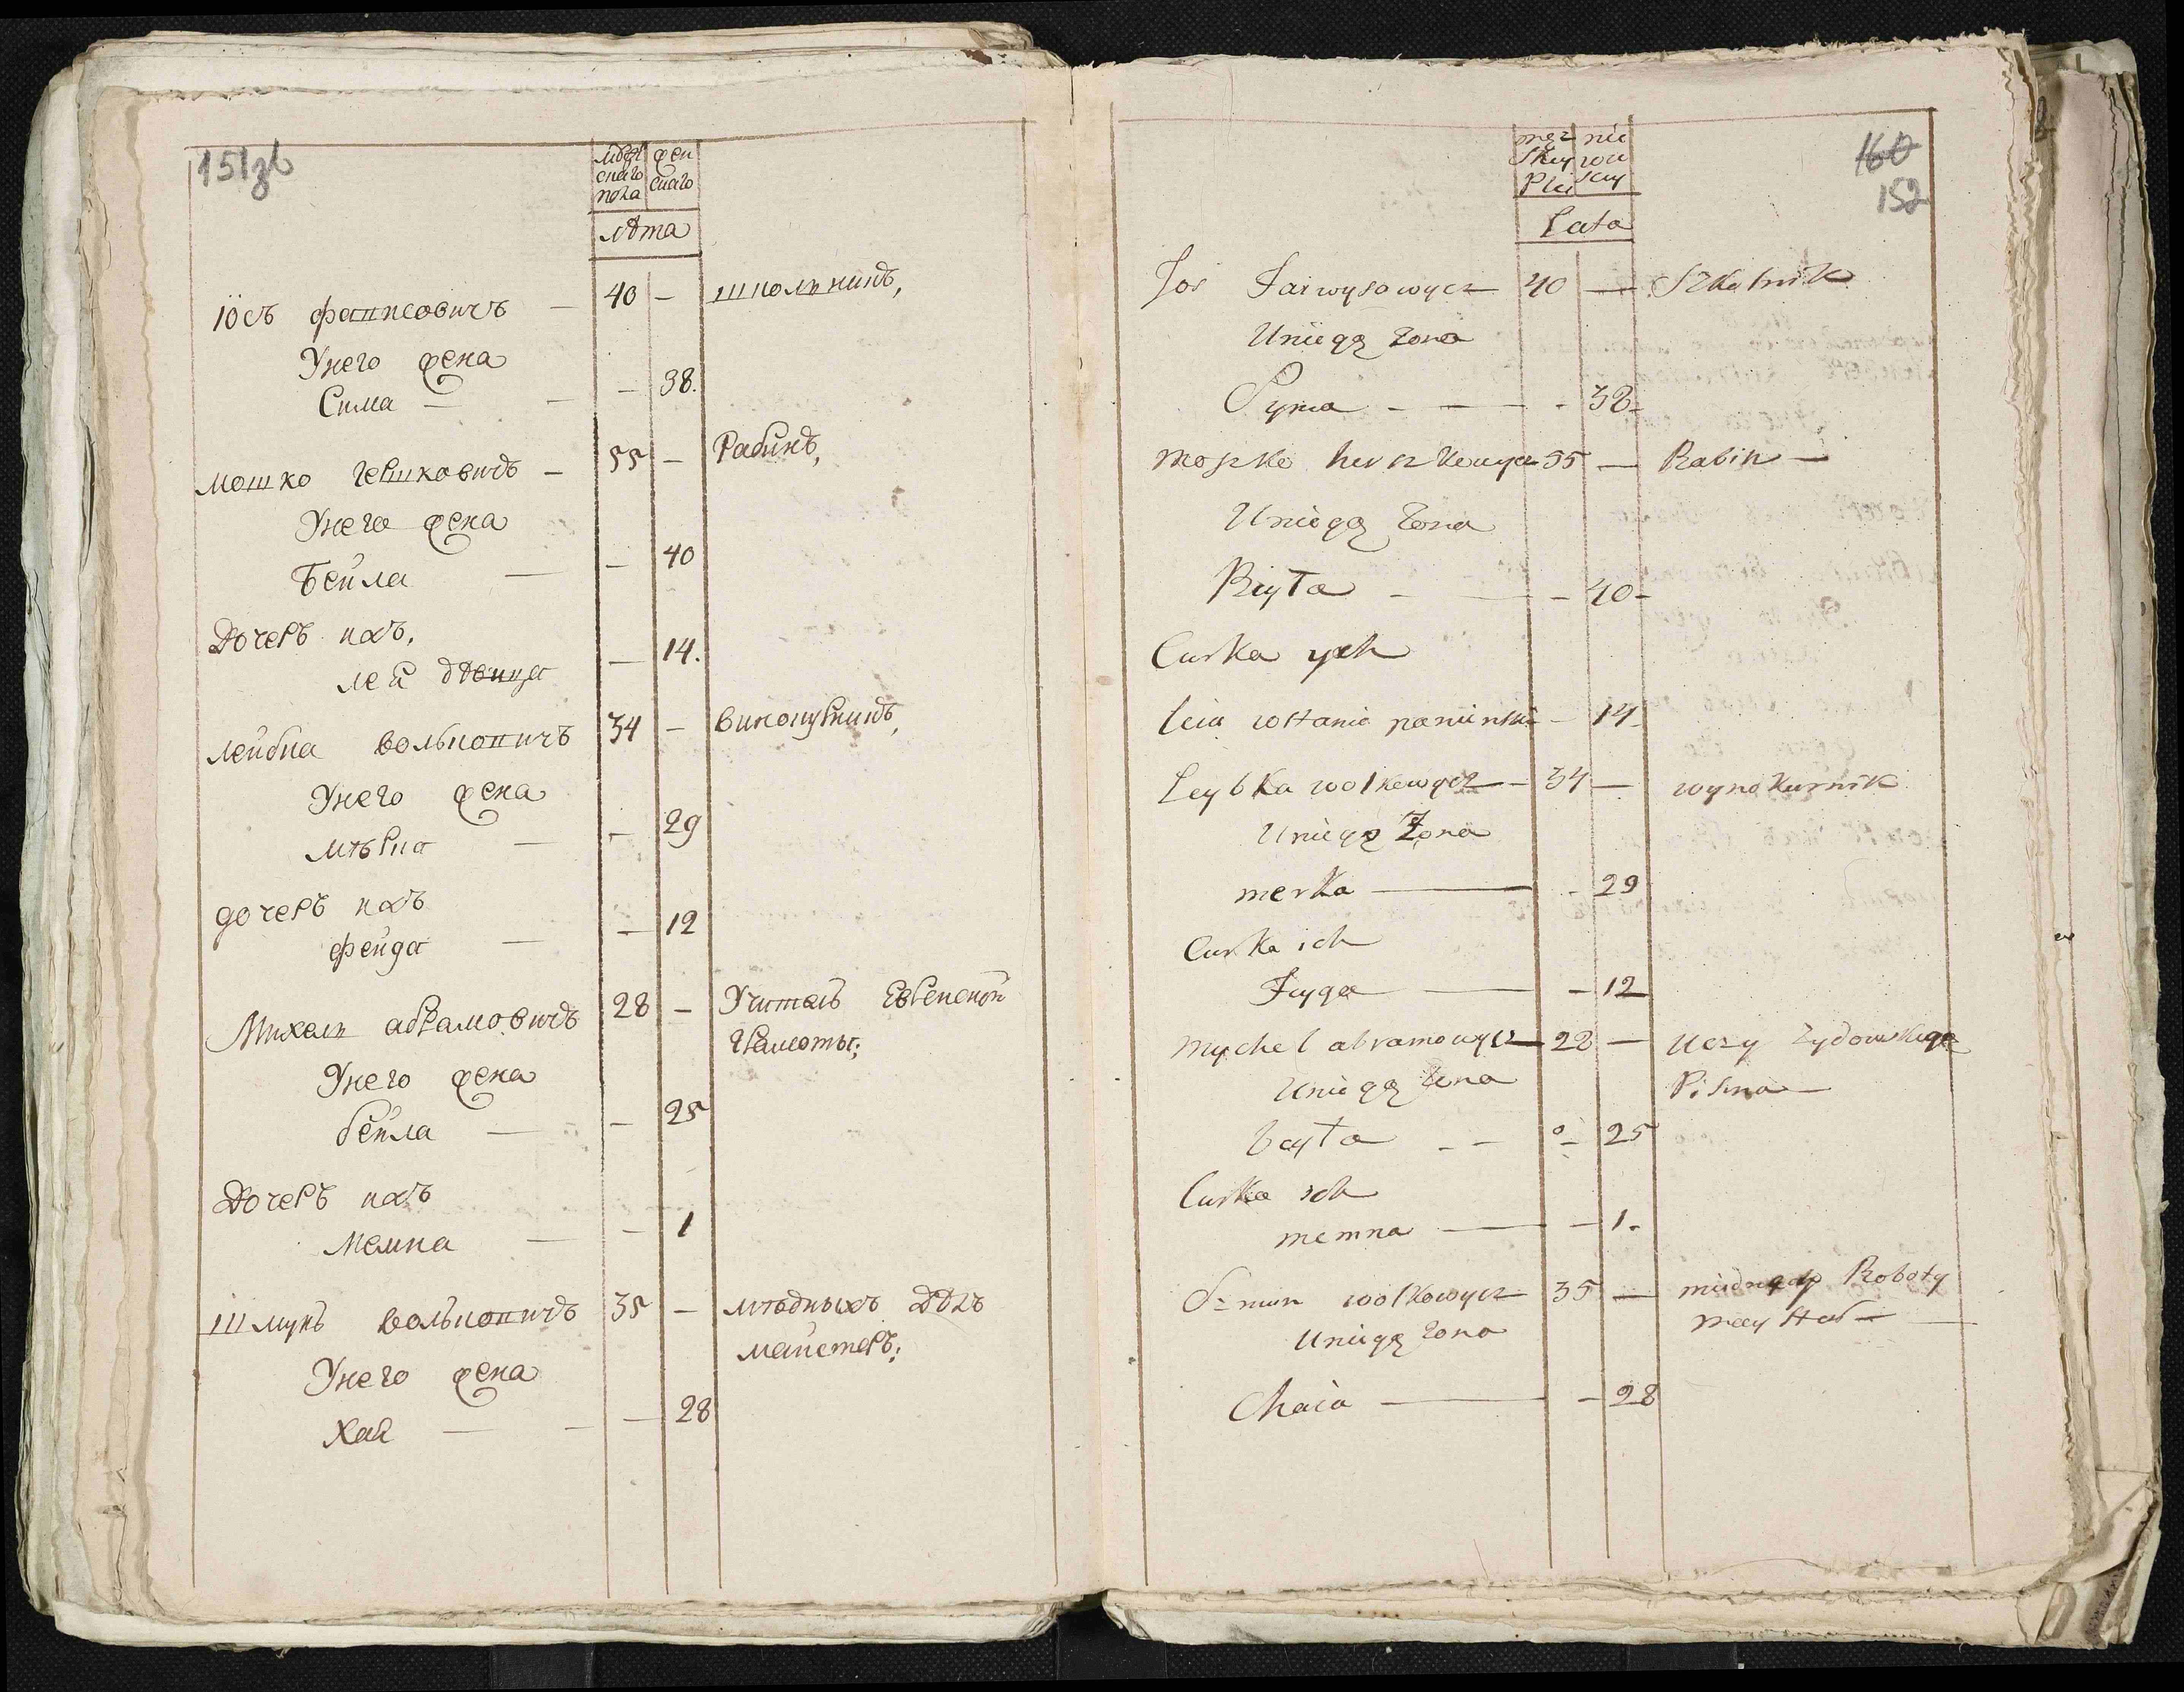 151zb
мужескаго пола
женскаго
лѣта
Іосъ фаписовичъ — 40 — школникъ,
Унего жена
Сима — — 38.
мошко гершковичъ — 55 — Рабинъ,
Унего жена
Бейла — — 40
Дочеръ ихъ,
лея дѣвица — 14.
лейбка волькопичъ 34 — винокурникъ,
Унего жена
мѣрка — — 29
дочеръ ихъ
фейга — — 12
Михель абрамовичъ 28 — Учитель Еврейской
грамоты;
Унего жена
бейла — — 25
Дочеръ ихъ
Мемна — — 1
Шмунъ волькопичъ 35 — мѣдныхъ дѣлъ
майстеръ;
Унего жена
Хая — — 28
męz skey Plci
nie wu scuy
160
152
Lata
Jos Faiwysowycz 40 — Szkolnik
Uniegą zona
Syma - — - 38-
moszko herszkowycz 55 — Rabin —
Uniegą zona
Beyła - — - 40-
Curka ych
leia wstanie panienskim - 14-
Leybka wolkowycz — 34 — wynokurnik
Uniegą Zona
merka — - 29
Curka ich
Feyga — - 12
mychel abramowycz 28 — uczy zydowskiego
Pisma —
Uniegą zona
beyła - - - 25
Curka ich
memna — - 1.
Szmun wolkowycz 35 — Roboty
mayster —
Uniegą zona
Chaia — - 28